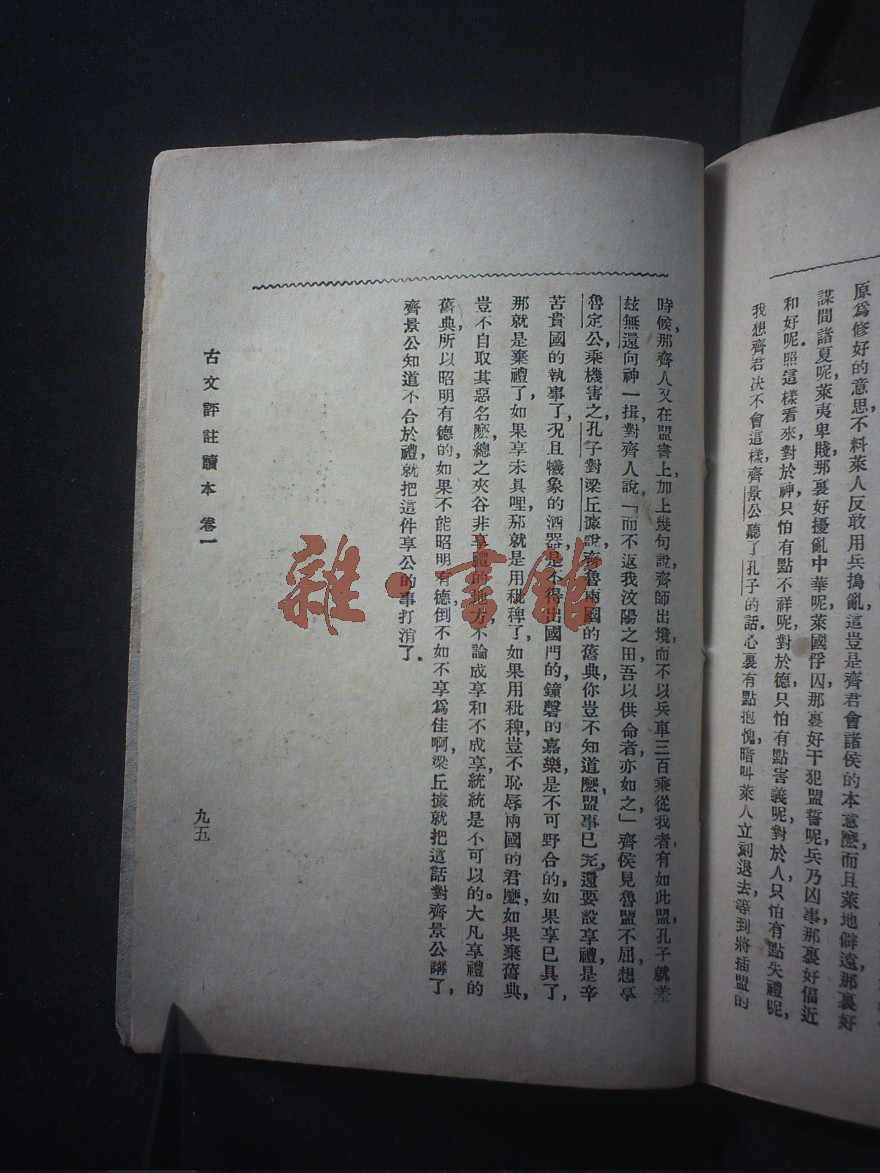 原爲修好的意思，不料萊人反敢用兵搗亂，這豈是齊君會諸侯的本意麽，而且萊地僻遠，那裏好
謀間諸夏呢，萊夷卑賤，那裏好擾亂中華呢，萊國俘囚，那裏好干犯盟誓呢，兵乃凶事，那裏好偪近
和好呢。照這樣看來，對於神，只怕有點不祥呢，對於德，只怕有點害義呢，對於人，只怕有點失禮呢，
我想齊君决不會這樣，齊景公聽了孔子的話。心裏有點抱愧，暗叫萊人立刻退去，等到將插盟的
時候，那齊人又在盟書上加上幾句說，齊師出境，而不以兵車三百乘從我者，有如此盟，孔子就差
玆無還向神一揖，對齊人說，「而不返我汶陽之田，吾以供命者，亦如之」齊侯見魯盟不屈，想享
魯定公，乘機害之，孔子對梁丘據說，齊魯兩國的舊典，你豈不知道麽，盟事已完，還要設享禮，是辛
苦貴國的執事了，况且犧象的酒器，是不得出國門的，鐘磬的嘉樂，是不可野合的，如果享已具了，
那就是棄禮了，如果享未具哩，那就是用秕稗了，如果用秕稗，豈不恥辱兩國的君麽，如果棄舊典，
豈不自取其惡名麽，總之夾谷非享禮的地方，不論成享和不成享，統統是不可以的。大凡享禮的
舊典，所以昭明有德的，如果不能昭明有德，倒不如不享爲佳啊，梁丘據就把這話對齊景公講了，
齊景公知道不合於禮，就把這件享公的事打消了。
古文評註讀本 卷一
九五
雜·書館